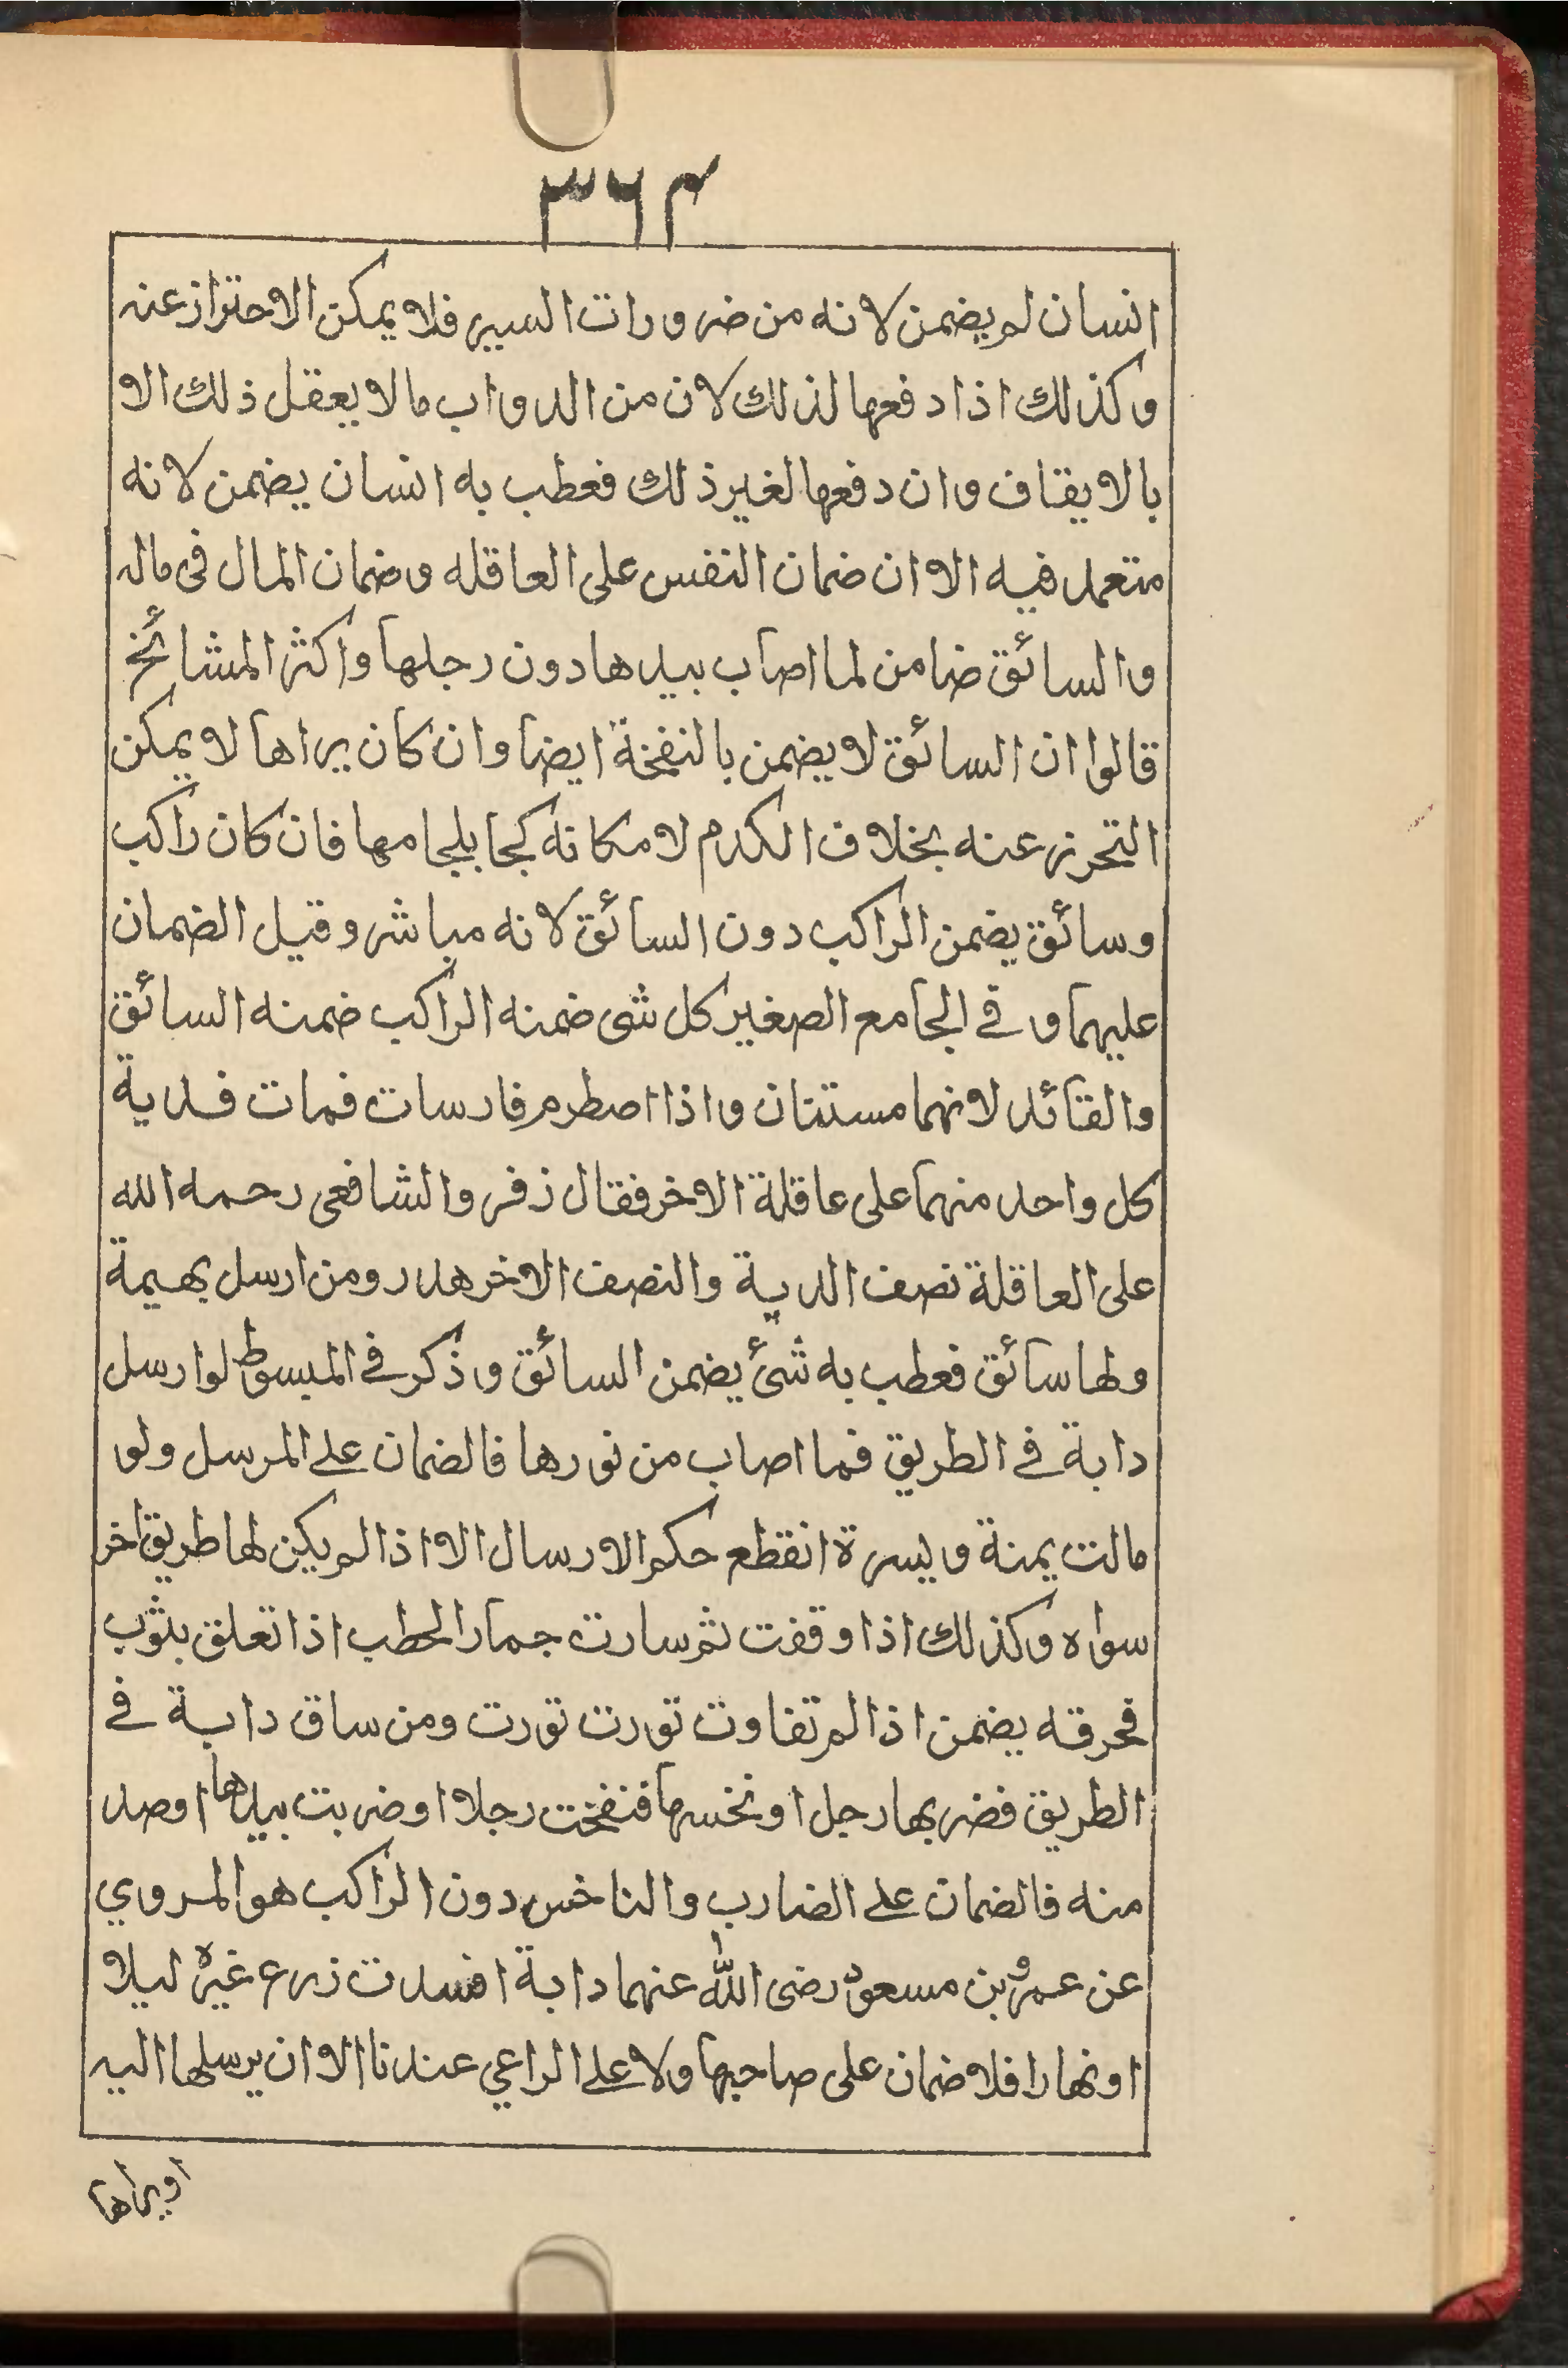 ٣٦٤
انسان لم يضمن لانه من ضرورات السير فلا يمكن الاحتراز عنه
وكذلك اذا دفعها لذلك لان من الدواب مالا يعقل ذلك الا
بالايقاف وان دفعها لغير ذلك فعطب به انسان يضمن لانه
متعمد فيه الا ان ضمان النفس على العاقله وضمان المال فى ماله
والسائق ضامن لما اصاب بيدها دون رجلها واكثر المشائخ
قالوا ان السائق لا يضمن بالنفخة ايضا وان كان يراها لا يمكن
التحرز عنه بخلاف الكدم لامكانه كبحا بلجامها فان كان راكب
وسائق يضمن الراكب دون السائق لانه مباشر وقيل الضمان
عليهما وفي الجامع الصغير كل شى ضمنه الراكب ضمنه السائق
والقائد لانهما مستنان واذا اصطرم فارسات فمات فدية
كل واحد منهما على عاقلة الاخر فقال ذفر والشافعى رحمه الله
على العاقلة نصف الدية والنصف الاخر هدر ومن ارسل بهيمة
ولها سائق فعطب به شئ يضمن السائق وذكر في المبسوط لوارسل
دابة في الطريق فما اصاب من نورها فالضمان على المرسل ولو
مالت يمنة ويسرة انقطع حكم الارسال الا اذا لم يكن لها طريق اخر
سواه وكذلك اذا وقفت ثم سارت جمار الحطب اذا تعلق بثوب
فحرقه يضمن اذا لم تفاوت تورت تورت ومن ساق دابة في
الطريق فضربها رجل او نخسها فنفخت رجلا او ضربت بيدها اوصد
منه فالضمان على الضارب والناخس دون الراكب هو المروي
عن عمرو بن مسعود رضى الله عنهما دابة افسدت زرع غيره ليلا
اونهارا فلا ضمان على صاحبها ولا على الراعي عندنا الا ان يرسلها اليه
اويراها